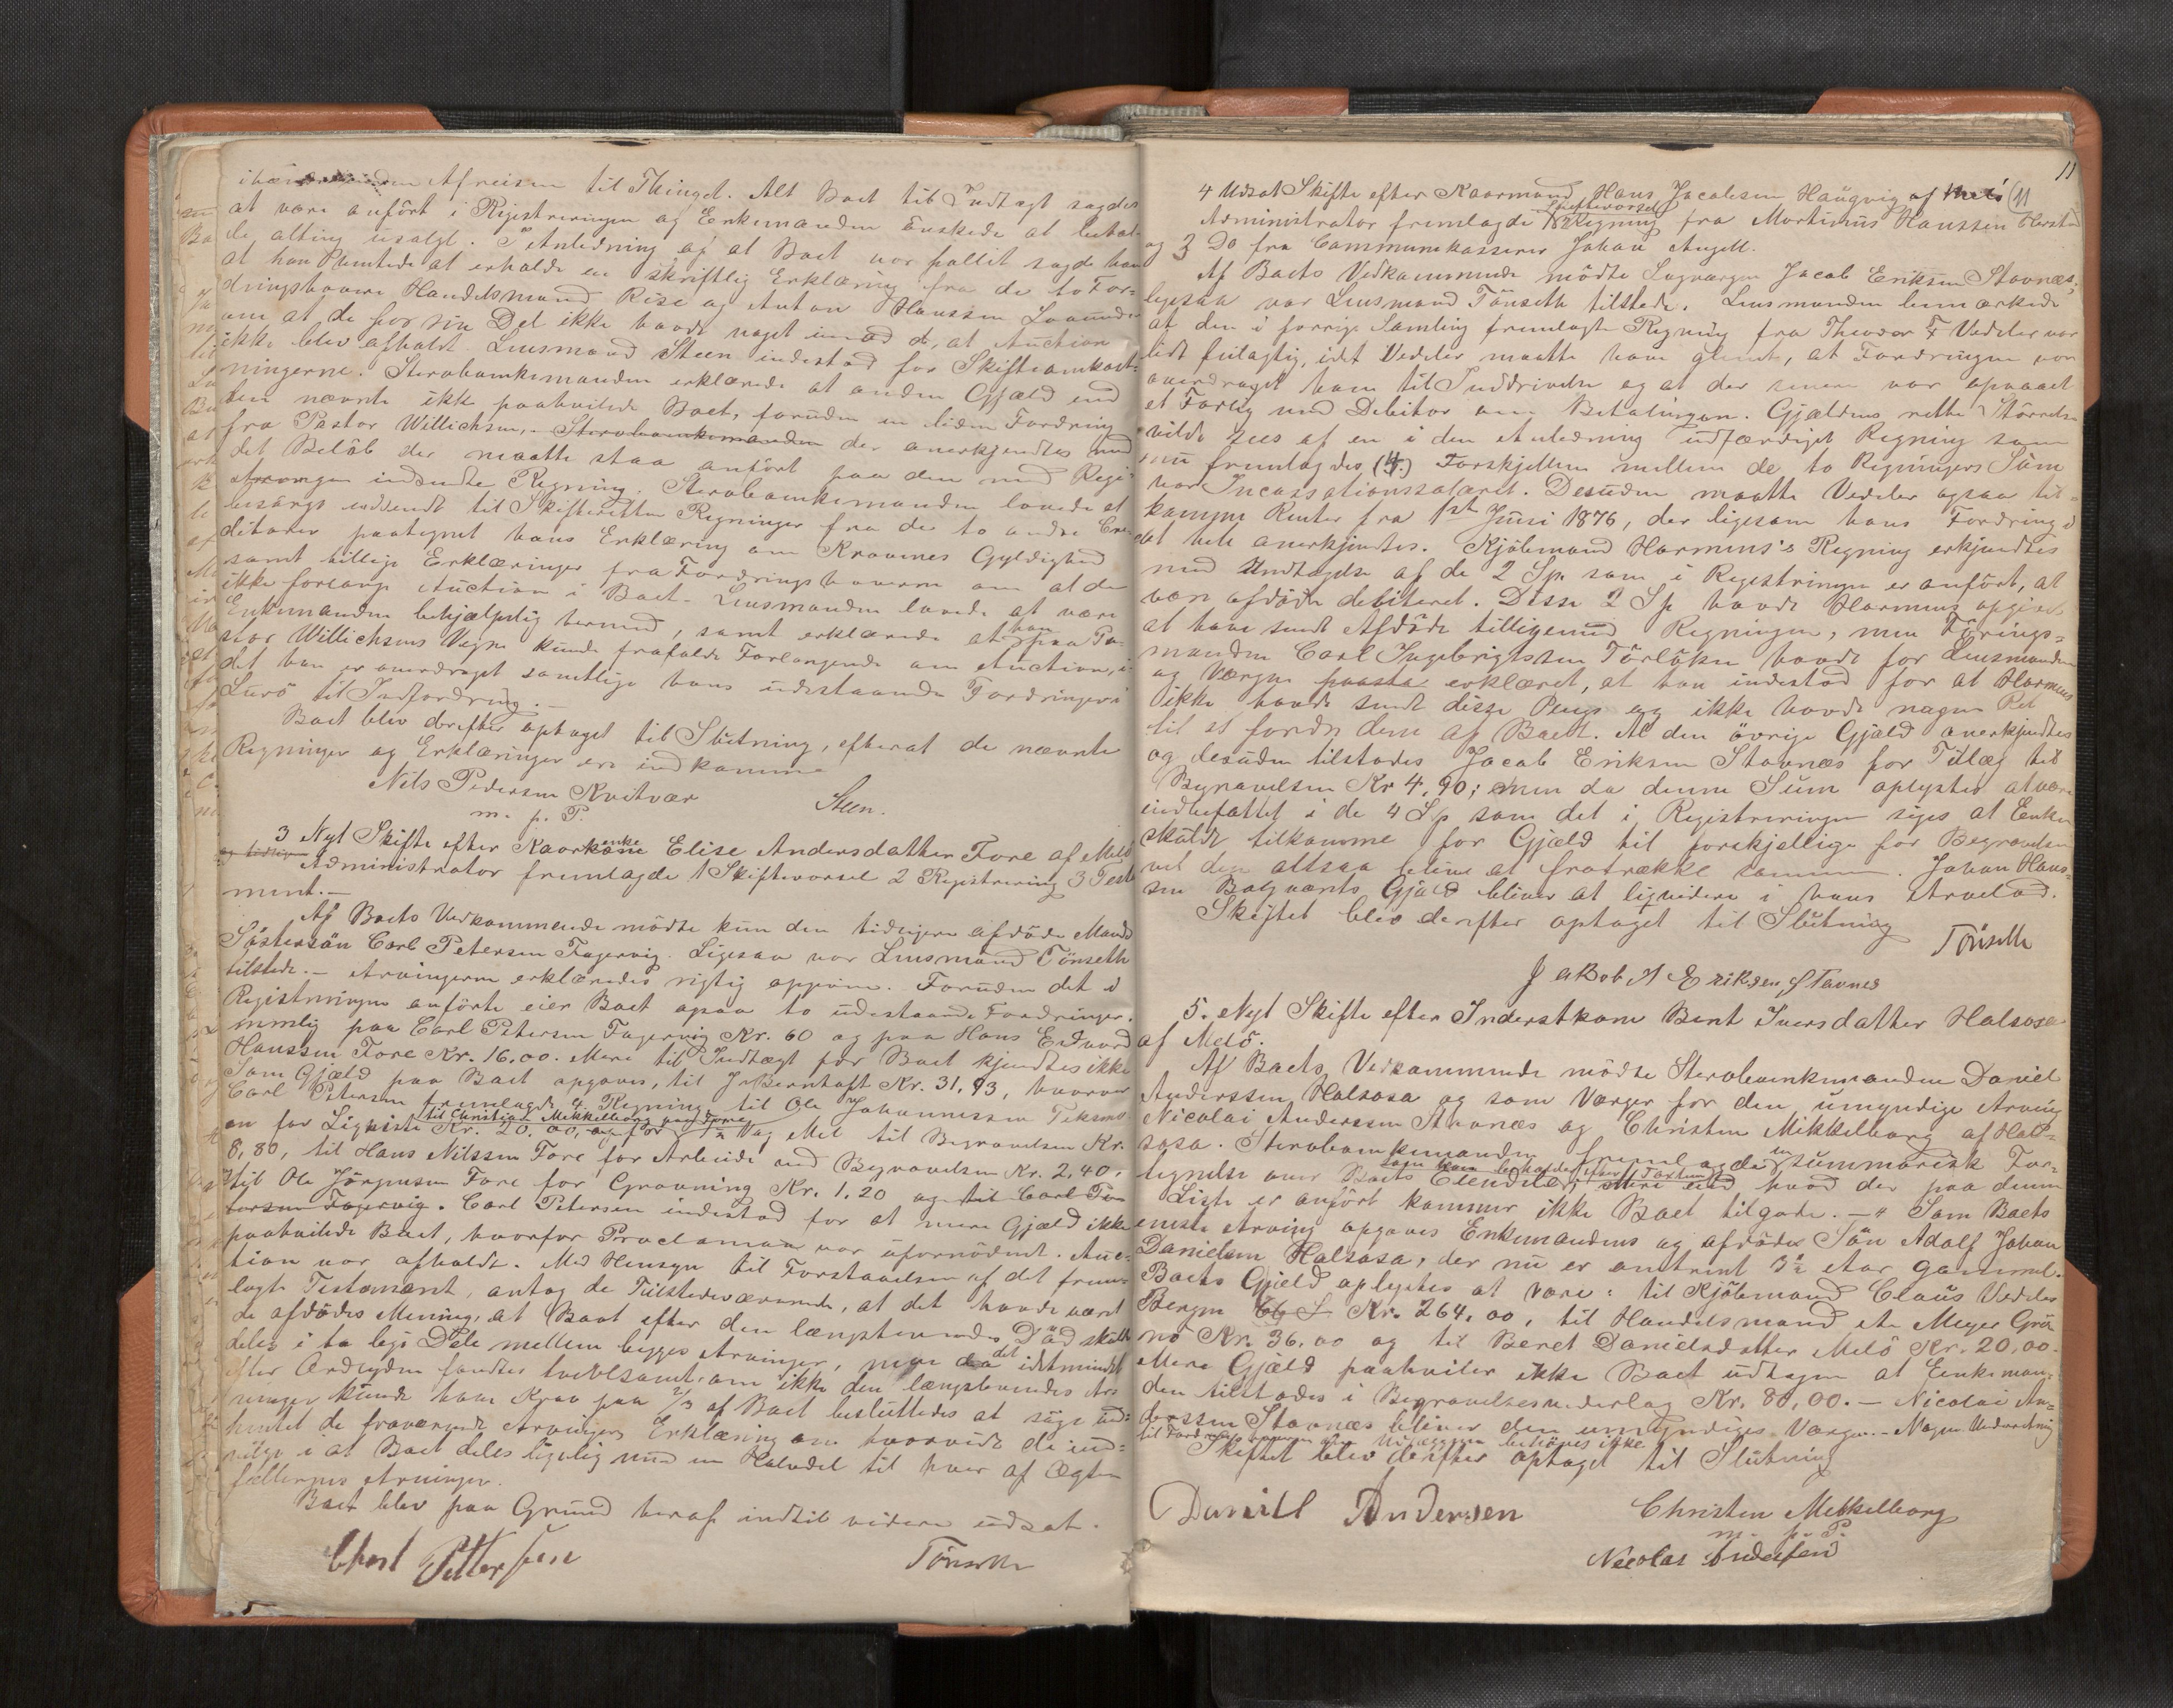 Afreisen til Thinget. Alt Boet til Indtægt sagdes
at være anført i Registreringen og Enkemanden ønskede at beta-
le alting usolgt. I Anledning af at Boet var fallit sagde han
at han ventede at erholde en skriftlig Erklæring fra de to For-
dringshavere Handelsmand Rise og Anton Hanssen Lovunden
om at de for sin Del ikke havde noget imod at Auction
ikke blev afholdt. Lensmand Steen indestod for Skifteomkost-
ningerne. Sterboenkemanden erklærede at anden Gjæld end
den nævnte ikke paahvilede Boet, foruden en liden Fordring
fra Pastor Willichsen, Sterboenkemanden der anerkjendtes med
det Beløb der maatte staa anført paa den med Regi-
streringen indsendte Regning. Sterboenkemanden lovede at
besørge indsendt til Skifteretten Regninger fra de to andre Cre-
ditorer paategnet hans Erklæring om Kravenes Gyldighed
samt tillige Erklæringer fra Fordringshaverne om at de
ikke forlange Auction i Boet. Lensmanden lovede at være
Enkemanden behjælpelig hermed, samt erklærede at han paa Pa-
stor Willichsens Vegne kunde frafalde Forlangende om Auction, i-
det han er overdraget samtlige hans udestaaende Fordringer i
Lurö til Indfordring.
Boet blev derefter optaget til Slutning, efterat de nævnte
Regninger og Erklæringer ere indkomne
Nils Pedersen Kvitvær
m. p. P.
Steen.
3 Nyt Skifte efter Kaarkone enke Elise Andersdatter Fore af Melö
Administrator fremlagde 1 Skiftevarsel 2 Registrering 3 Testa
ment.-
Af Boets Vedkommende mödte kun den tidligere afdöde Mands
Söstersön Carl Petersen Fagervig. Ligesaa var Lensmand Tönseth
tilstede. - Arvingerne erklæredes rigtig opgivne. Foruden det i
Registreringen anförte eier Boet ogsaa to udestaaende Fordringer,
nemlig paa Carl Petersen Fagervig Kr. 60 og paa Hans Edvard
Hanssen Fore Kr. 16.00. Mere til Indtægt for Boet kjendtes ikke
Som Gjæld paa Boet opgaves, til J Bernhoft Kr. 31.93, hvorover
Carl Petersen fremlagde 4 Regning, til Ole Johannessen Teksmo-
en for Ligkiste Kr. 20.00, til Christian Mikkelborg 1½ Vog Mel til Begravelsen Kr.
8,80, til Hans Nilssen Fore for Arbeide ved Begravelsen Kr. 2,40,
til Ole Jörgensen Fore for Gravning Kr. 1.20 og til Carl Pe-
tersen Fagervig. Carl Petersen indestod for at mere Gjæld ikke
paahvilede Boet, hvorfor Proclama var ufornödent. Auc-
tion var afholdt. Med Hensyn til Forstaaelsen af det frem-
lagte Testament, antog de Tilstedeværende, at det havde været
de afdödes Mening, at Boet efter den længstlevendes Död skulde
deles i to lige Dele mellem begges Arvinger, men da det idetmindste
efter Ordlyden fandtes tvivlsomt, om ikke den længstlevendes Ar-
vinger kunde have Krav paa 2/3 af Boet besluttedes at söge ind-
hentet de fraværende Arvingers Erklæring om hvorvidt de ind-
vilge i at Boet deles ligelig med en Halvdel til hver af Ægte-
fællernes Arvinger.
Boet blev paa Grund heraf indtil videre udsat.
Carl Pettersen
Tönseth
11
4 Udsat Skifte efter Kaarmand Hans Jacobsen Haugvig af Melö (11
Administrator fremlagde Skiftevarsel 2 Regning fra Mortinus Hanssen
og 3 Do fra Communekasserer Johan Angell.
Af Boets Vedkommende mödte Lagværge Jacob Eriksen Stavnæs,
ligesaa var Lensmand Tönseth tilstede. Lensmanden bemærkede
at den i forrige Samling fremlagte Regning fra Theodor F Vedeler var
lidt feilagtig, idet Vedeler maatte have glemt, at Fordringen var
overdraget ham til Inddrivelse og at der senere var opnaaet
et Forlig med Debitor om Betalingen. Gjældens rette Störrelse
vilde sees af en i den Anledning udfærdiget Regning som
nu fremlagdes (4.) Forskjellen mellem de to Regningers Sum
var Incassationssalæret. Desuden maatte Vedeler ogsaa til-
komme Renter fra 1st Juni 1876, der ligesom hans Fordring i
det hele anerkjendtes. Kjöbmand Harmens's Regning erkjendtes
med Undtagelse af de 2 Sp. som i Registreringen er anfört, at
være afdöde debiteret. Disse 2 Sp havde Harmens opgivet
at have sendt Afdöde tilligemed Regningen, men Förings-
manden Carl Ingebrigtsen Törlöken havde for Lensmanden
og Værgen paasta erklæret, at han indestod for at Harmens
ikke havde sendt disse Penge og ikke havde nogen Ret
til at fordre dem af Boet. Al den övrige Gjæld anerkjendtes
og desuden tilstodes Jacob Eriksen Stavnæs for Tillæg til
Begravelsen Kr 4,90; men da denne Sum oplystes at være
indbefattet i de 4 Sp som det i Registreringen siges at Enken
skulde tilkomme for Gjæld til forskjellige for Begravelsen
vil den altsaa blive at fratrække samme. Johan Hans-
sen Bolgværts Gjæld bliver at liqvidere i hans Arvelod.
Skiftet blev derefter optaget til Slutning
Tönseth
Jakob A Eriksen Stavnes
5. Nyt Skifte efter Inderstkone Berit Iversdatter Halsosa
af Melö.
Af Boets Vedkommende mödte Sterboenkemanden Daniel
Anderssen Halsosa og som Værger for den umyndige Arving
Nicolai Anderssen Stavnæs og Christen Mikkelborg af Hals-
sosa. Sterboenkemanden fremlagde en summarisk For-
tegnelse over Boets Eiendele, som han beholder efter Taxten. Mere end hvad der paa denne
Liste er anfört kommer ikke Boet tilgode. - Som Boets
eneste Arving opgaves Enkemandens og afdödes Sön Adolf Johan
Danielsen Halsosa, der nu er omtrent 3½ Aar gammel.
Boets Gjæld oplystes at være: til Kjöbmand Claus Vedeler
Bergen Kr. 264,00, til Handelsmand A Meyer Grö
nö Kr. 36,00 og til Beret Danielsdatter Melö Kr. 20,00.
Mere Gjæld paahviler ikke Boet udtagen at Enkeman-
den tilstodes i Begravelsesvederlag Kr. 80,00. - Nicolai An-
derssen Stavnæs bliver den umyndiges Værge. - Nogen Underretning
til Fordringshaverne om Udlæggene behöves ikke
Skiftet blev derefter optaget til Slutning
Daniel Andersen
Christen Mikkelborg
m. p. P.
Nicolai Andersen